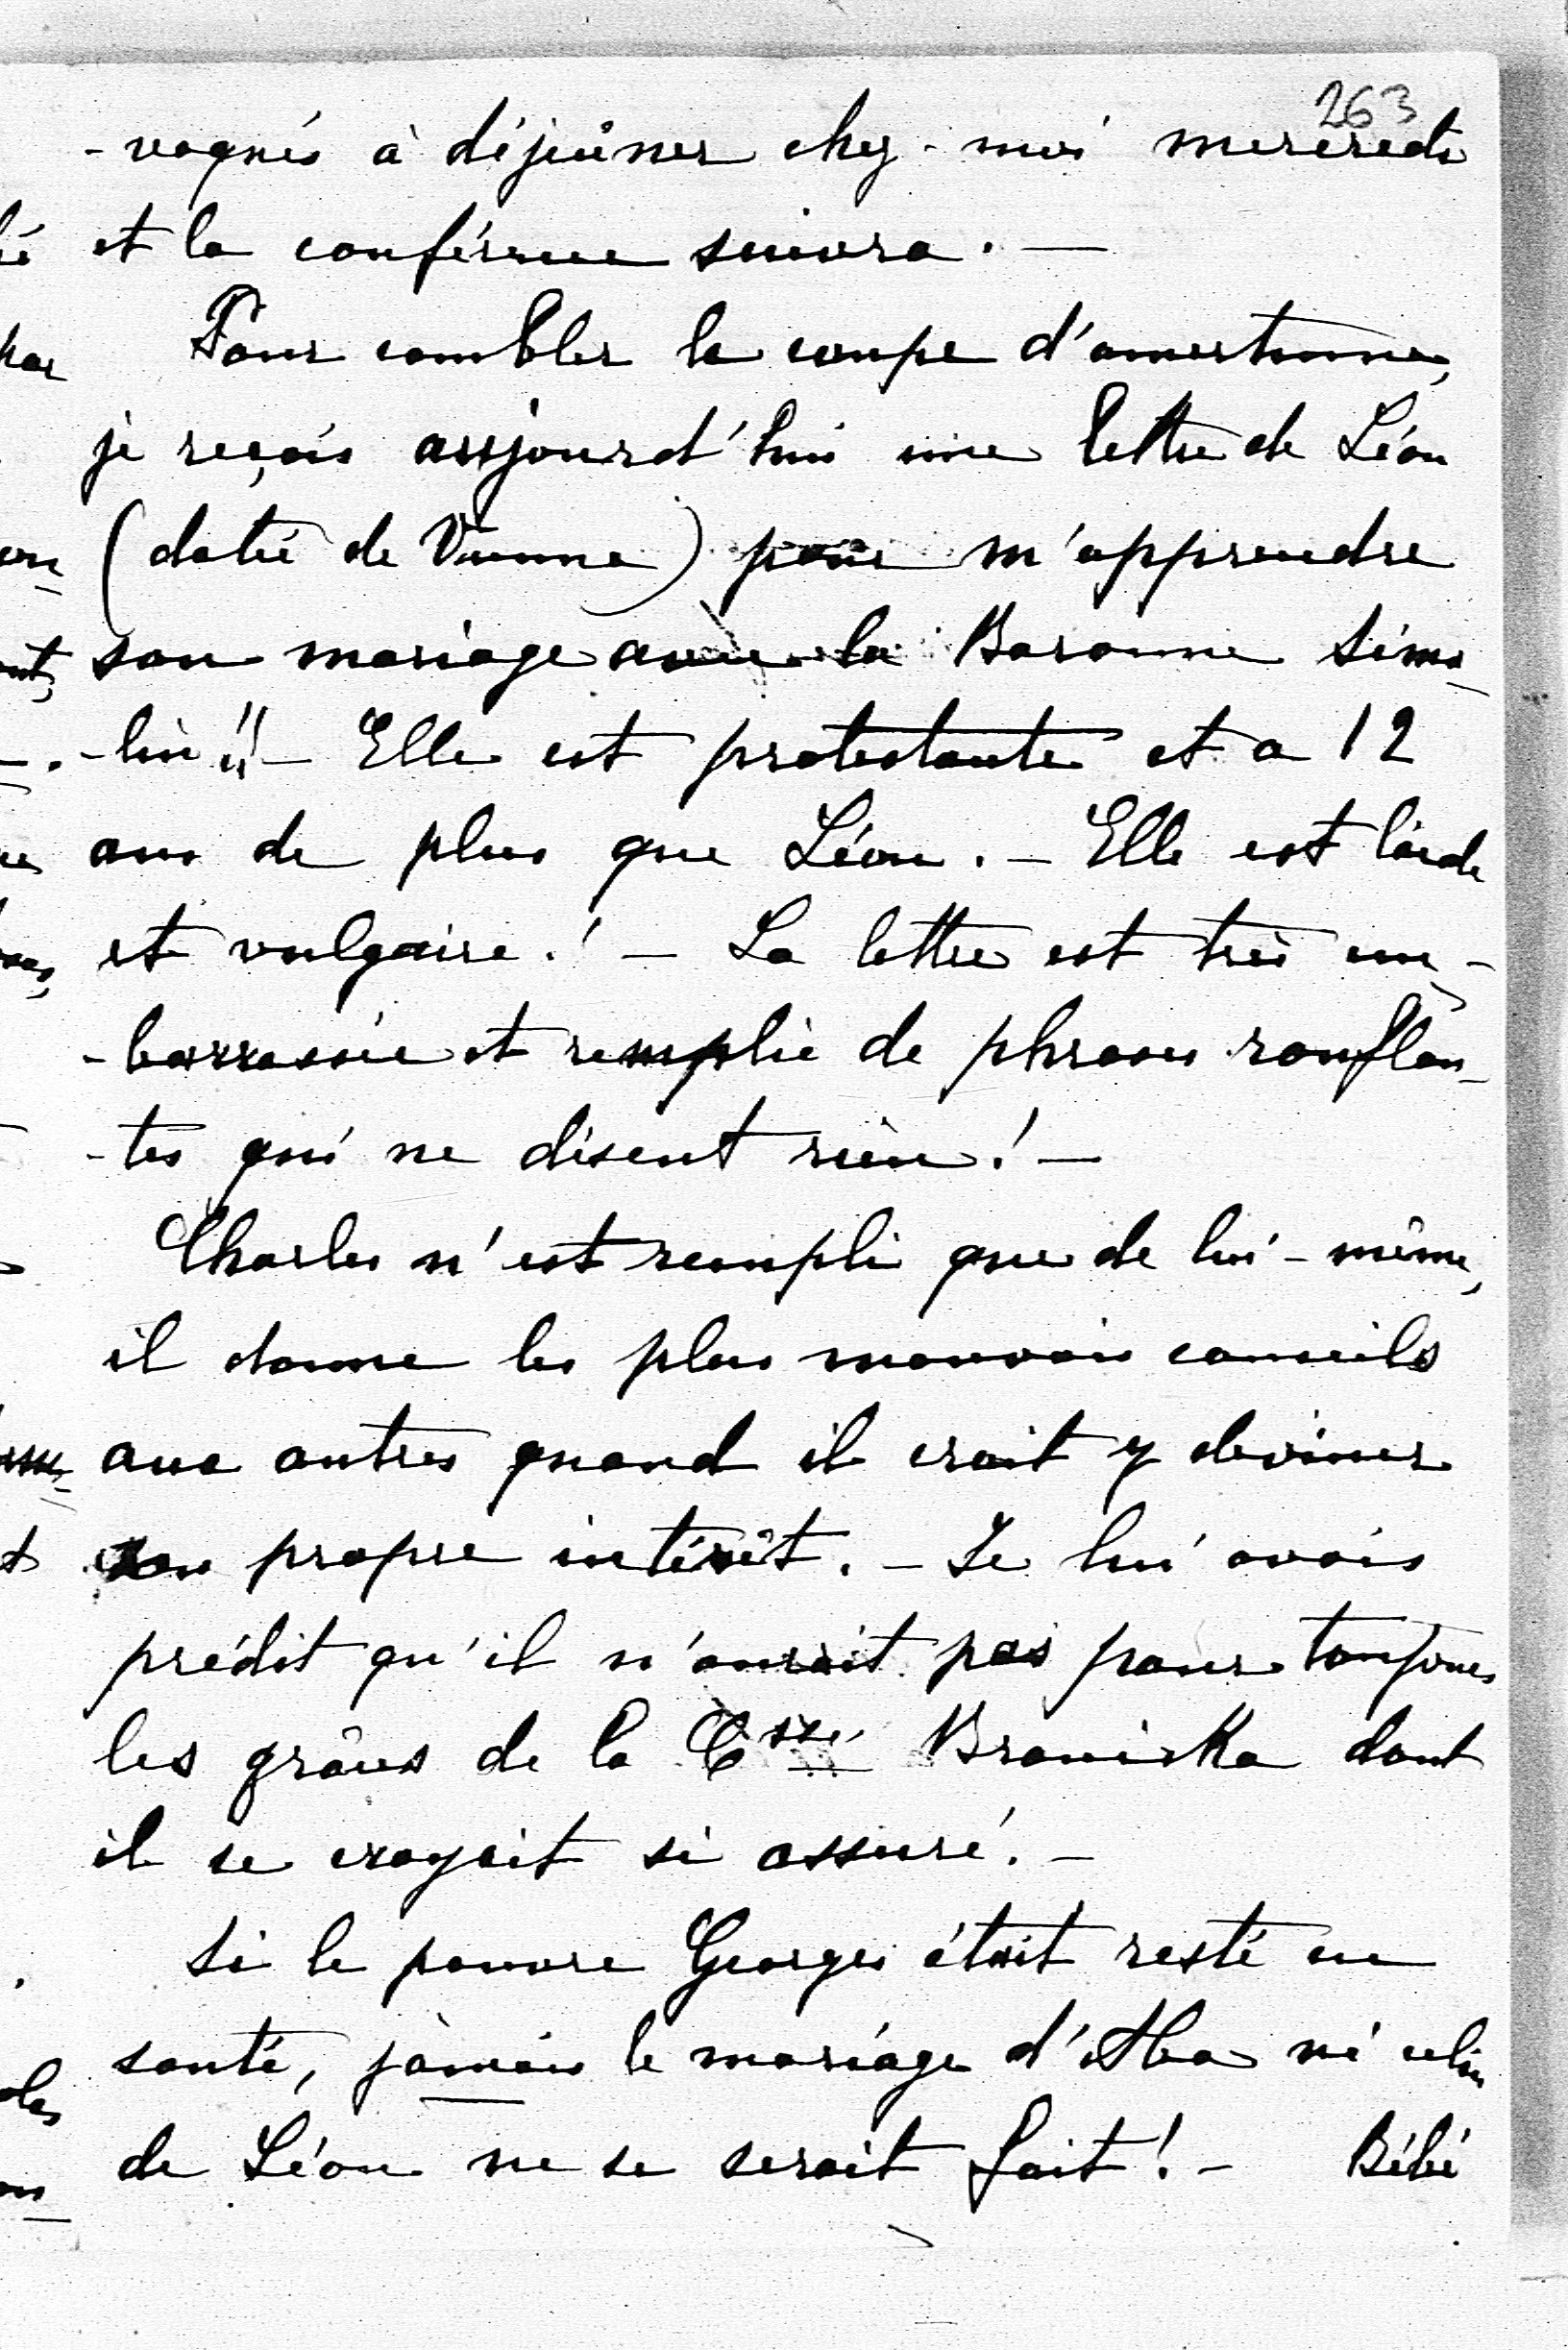 263
-voqués à déjeûner chez-moi mercredi
et la conférence suivra. —
Pour combler la coupe d'amertume,
je reçois aujourd'hui une lettre de Léon
(datée de Vienne) pour m'apprendre
son mariage avec la Baronne Sima-
-lin!! — Elle est protestante et a 12
ans de plus que Léon. — Elle est laide
et vulgaire! — La lettre est très em-
-barrassée et remplie de phrases ronflan-
-tes qui ne disent rien! —
Charles n'est rempli que de lui-même,
il donne les plus mauvais conseils
aux autres quand il croit y deviner
son propre intérêt. — Je lui avais
prédit qu'il n'aurait pas pour toujours
les grâces de la Csse Braniska dont
il se croyait si assuré. —
Si le pauvre Georges était resté en
santé, jamais le mariage d'Aba ni celui
de Léon ne se serait fait! — Bébé